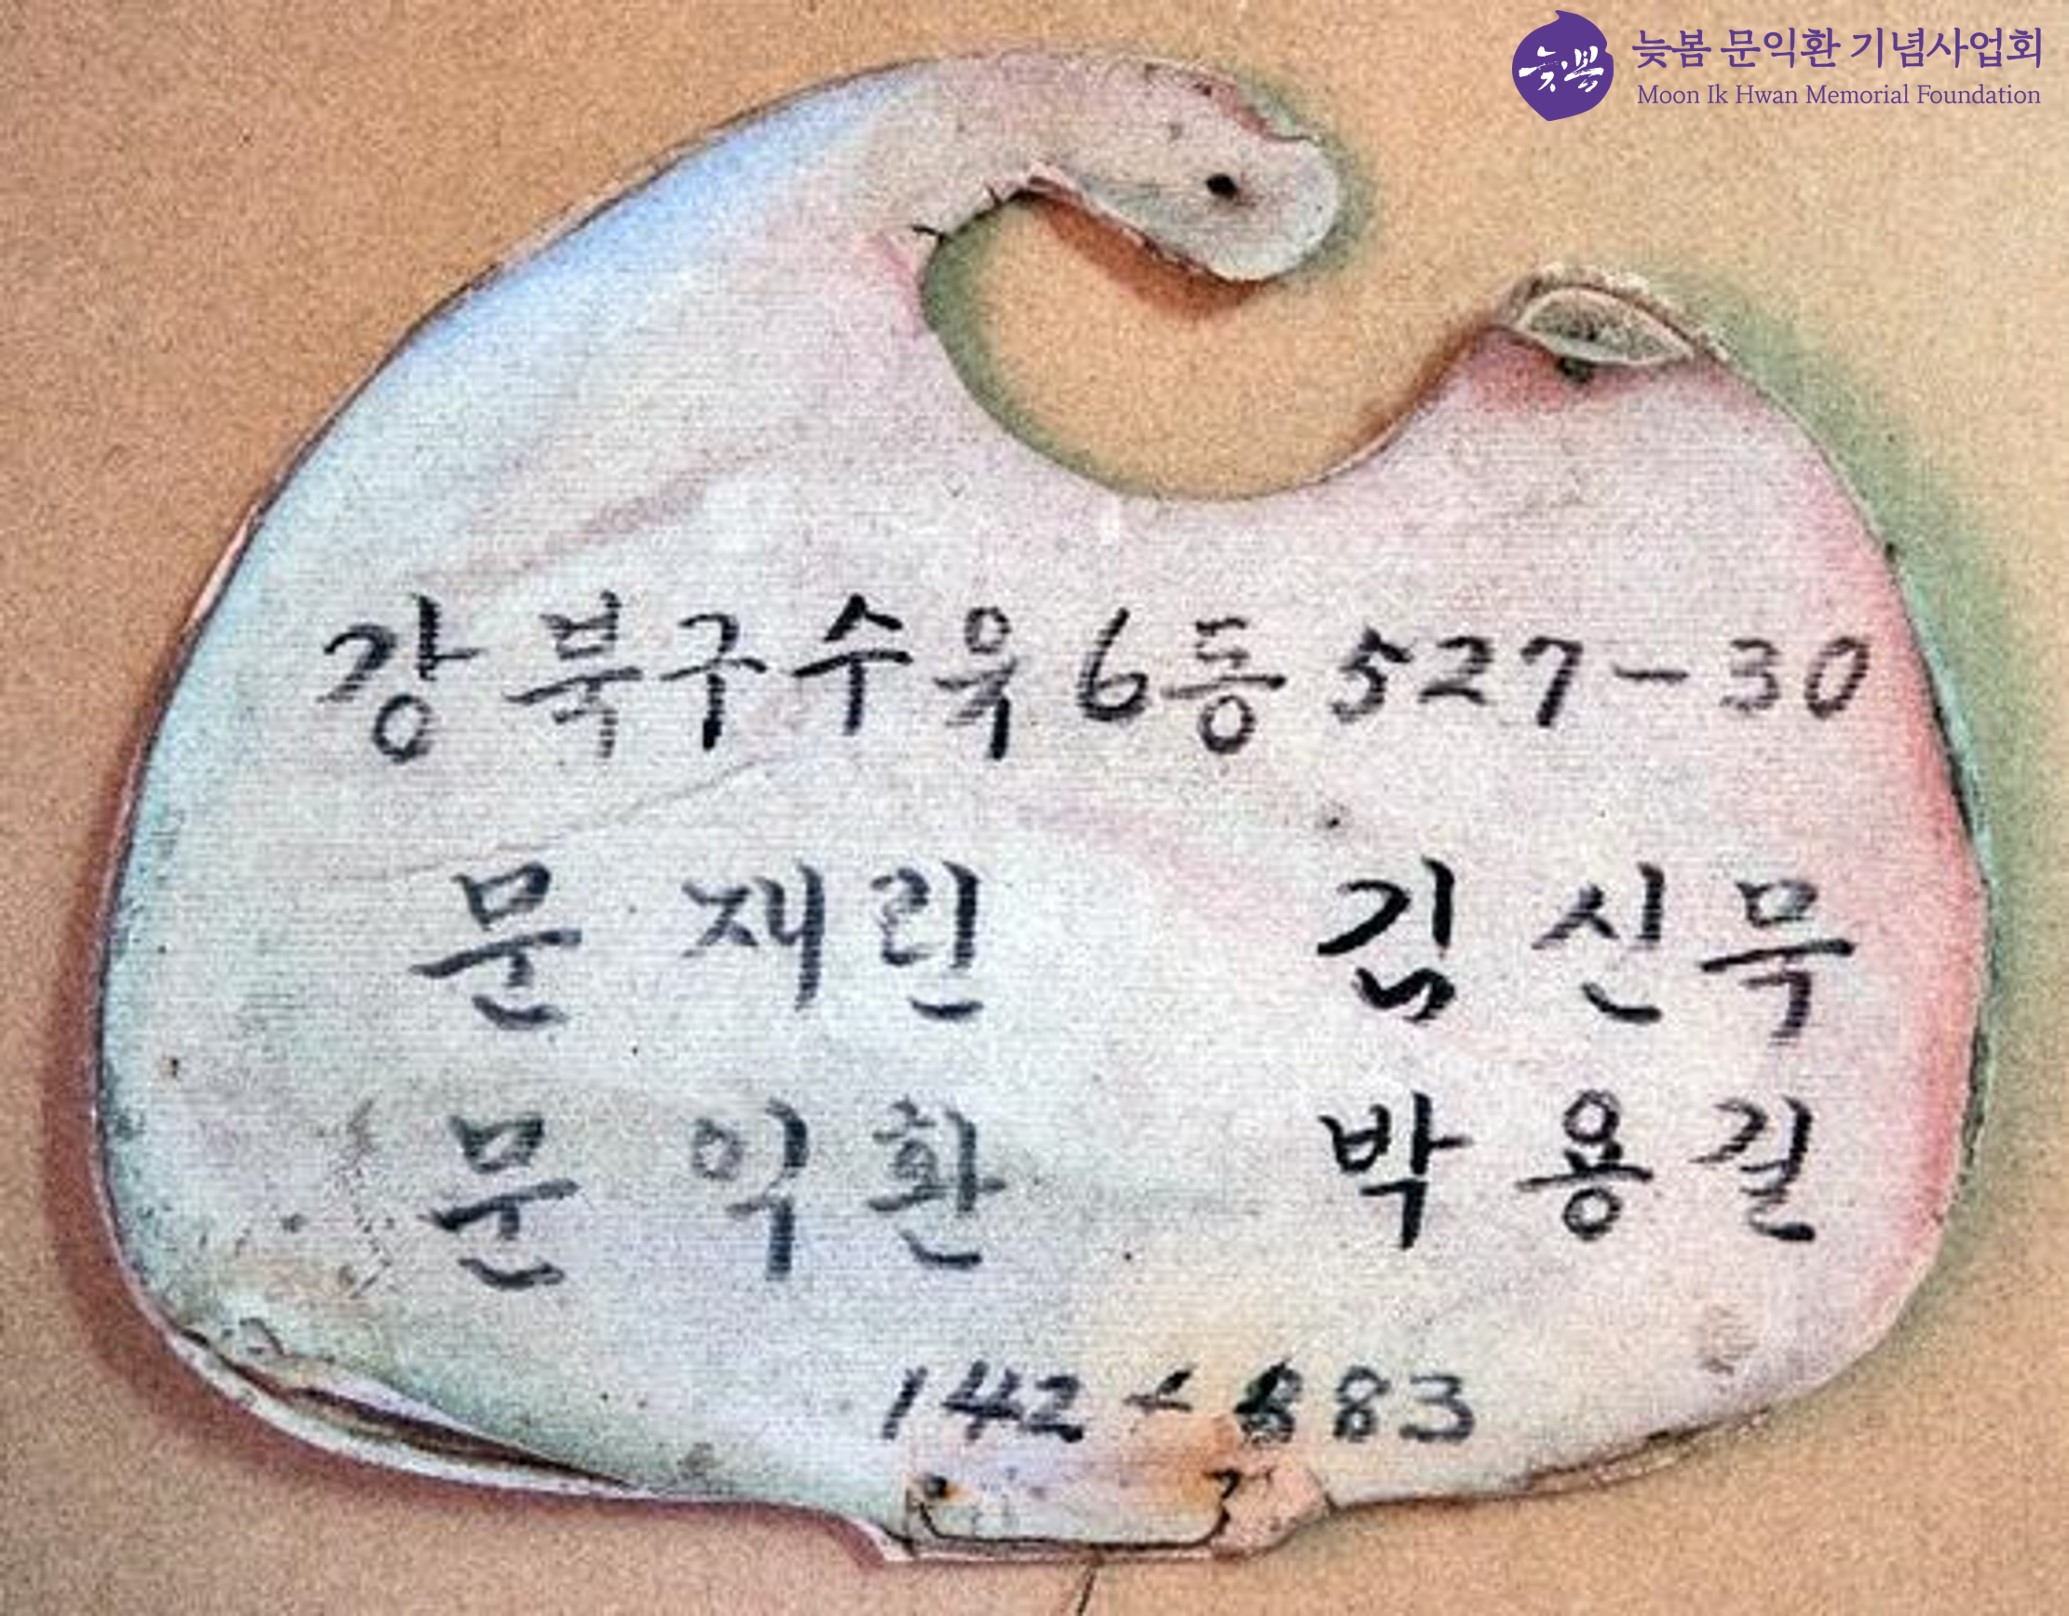 늦봄
늦봄 문익환 기념사업회
Moon Ik Hwan Memorial Foundation
강북구수유6동 527-30
문재린 김신묵
문익환 박용길
142-883